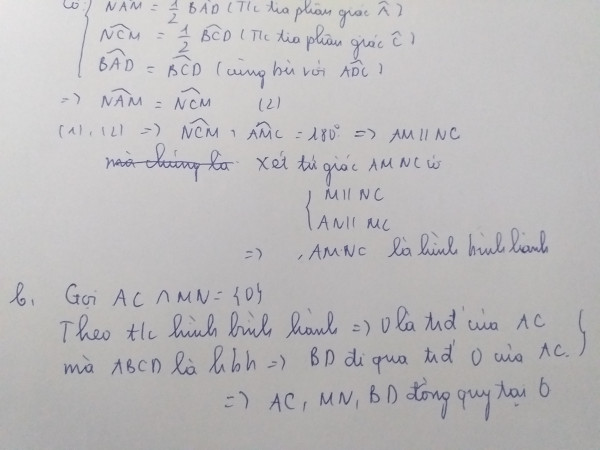 Có: { NAM̂ = 1/2 BAD̂ (T/c tia phân giác Â)
NCM̂ = 1/2 BCD̂ (T/c tia phân giác Ĉ)
BAD̂ = BCD̂ (cùng bù với ADĈ)
=> NAM̂ = NCM̂ (2)
(1), (2) => NCM̂, AMĈ = 180° => AM // NC
mà chúng là Xét tứ giác AMNC có
{ M // NC
AN // MC
=> , AMNC là hình bình hành
b, Gọi AC ∩ MN = {O}
Theo t/c hình bình hành => O là trđ' của AC }
mà ABCD là hbh => BD đi qua trđ' O của AC.
=> AC, MN, BD đồng quy tại O